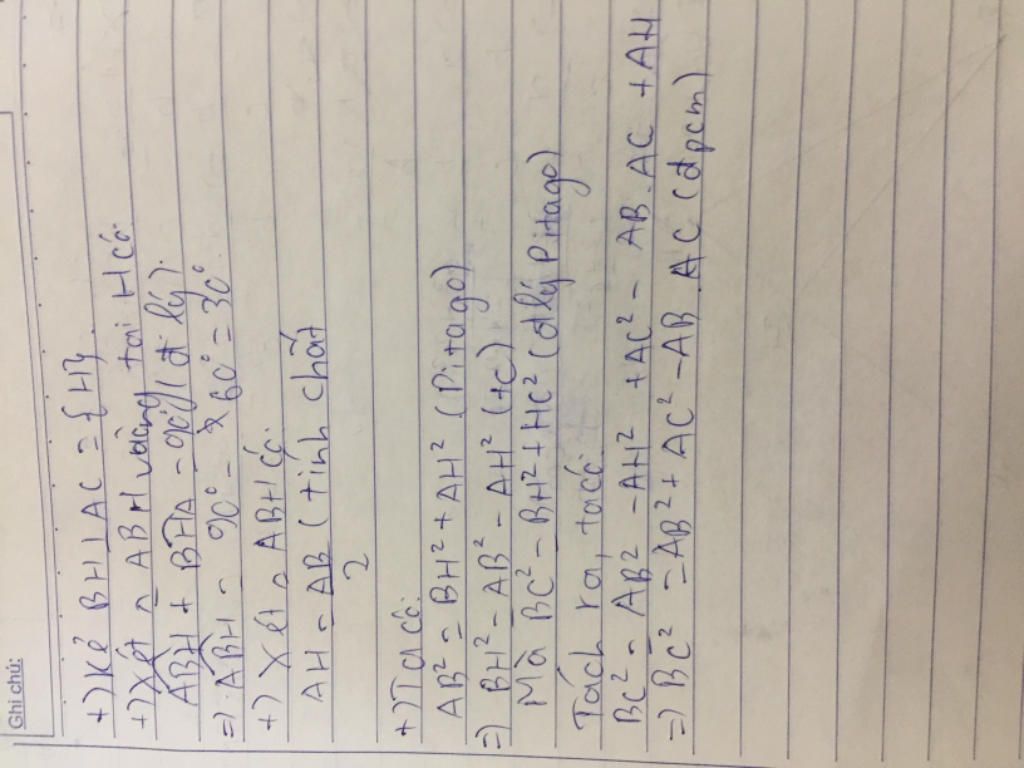 Ghi chú:
+) Kẻ BH ⊥ AC = {H}
+) Xét △ ABH vuông tại H có:
ABH + BHA = 90° (đ lý).
=) ABH = 90° - 60° = 30°
+) Xét △ ABH có:
AH = AB (tính chất
2
+) Ta có:
AB² = BH² + AH² (Pitago)
=) BH² = AB² - AH² (tc)
Mà BC² = BH² + HC² (đ lý Pitago)
Tách ra, ta có:
BC² = AB² - AH² + AC² - AB . AC + AH
=) BC² = AB² + AC² - AB . AC (đpcm)